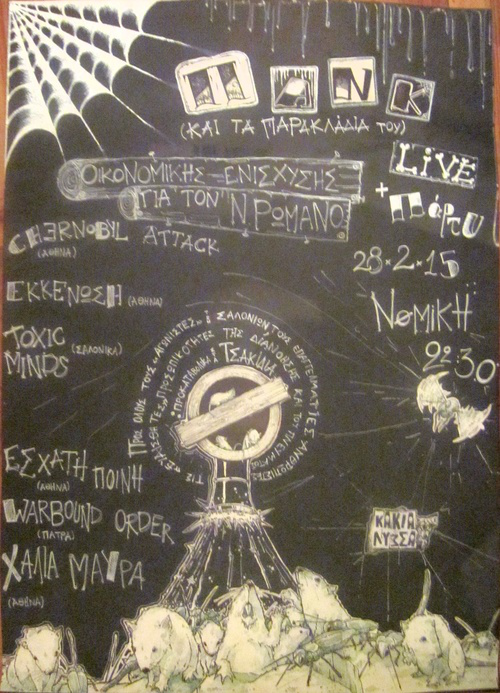 ΠΑΝΚ
(ΚΑΙ ΤΑ ΠΑΡΑΚΛΑΔΙΑ ΤΟΥ)
LIVE
+ πάρτυ
ΟΙΚΟΝΟΜΙΚΗΣ ΕΝΙΣΧΥΣΗΣ
ΓΙΑ ΤΟΝ Ν ΡΩΜΑΝΟ
28·2·15
ΝΟΜΙΚΗ
22:30
CHERNOBYL ATTACK
(ΑΘΗΝΑ)
ΕΚΚΕΝΩΣΗ (ΑΘΗΝΑ)
TOXIC MINDS (ΣΑΛΟΝΙΚΑ)
ΕΣΧΑΤΗ ΠΟΙΝΗ
(ΑΘΗΝΑ)
WARBOUND ORDER
(ΠΑΤΡΑ)
ΧΑΛΙΑ ΜΑΥΡΑ
(ΑΘΗΝΑ)
ΠΡΟΣ ΟΛΟΥΣ ΤΟΥΣ "ΑΓΩΝΙΣΤΕΣ"
ΣΑΛΟΝΙΩΝ ΤΟΥΣ ΕΡΓΑΤΕΙΑ
ΠΡΟΣΩΠΙΚΟΤΗΤΕΣ ΤΗΣ ΔΙΑΝΟΗΣΗΣ ΚΑΙ ΤΟΥ ΠΝΕΥΜΑΤΟΣ
ΤΣΑΚΙΔΙΑ
ΚΑΚΙΑ
ΛΥΣΣΑ